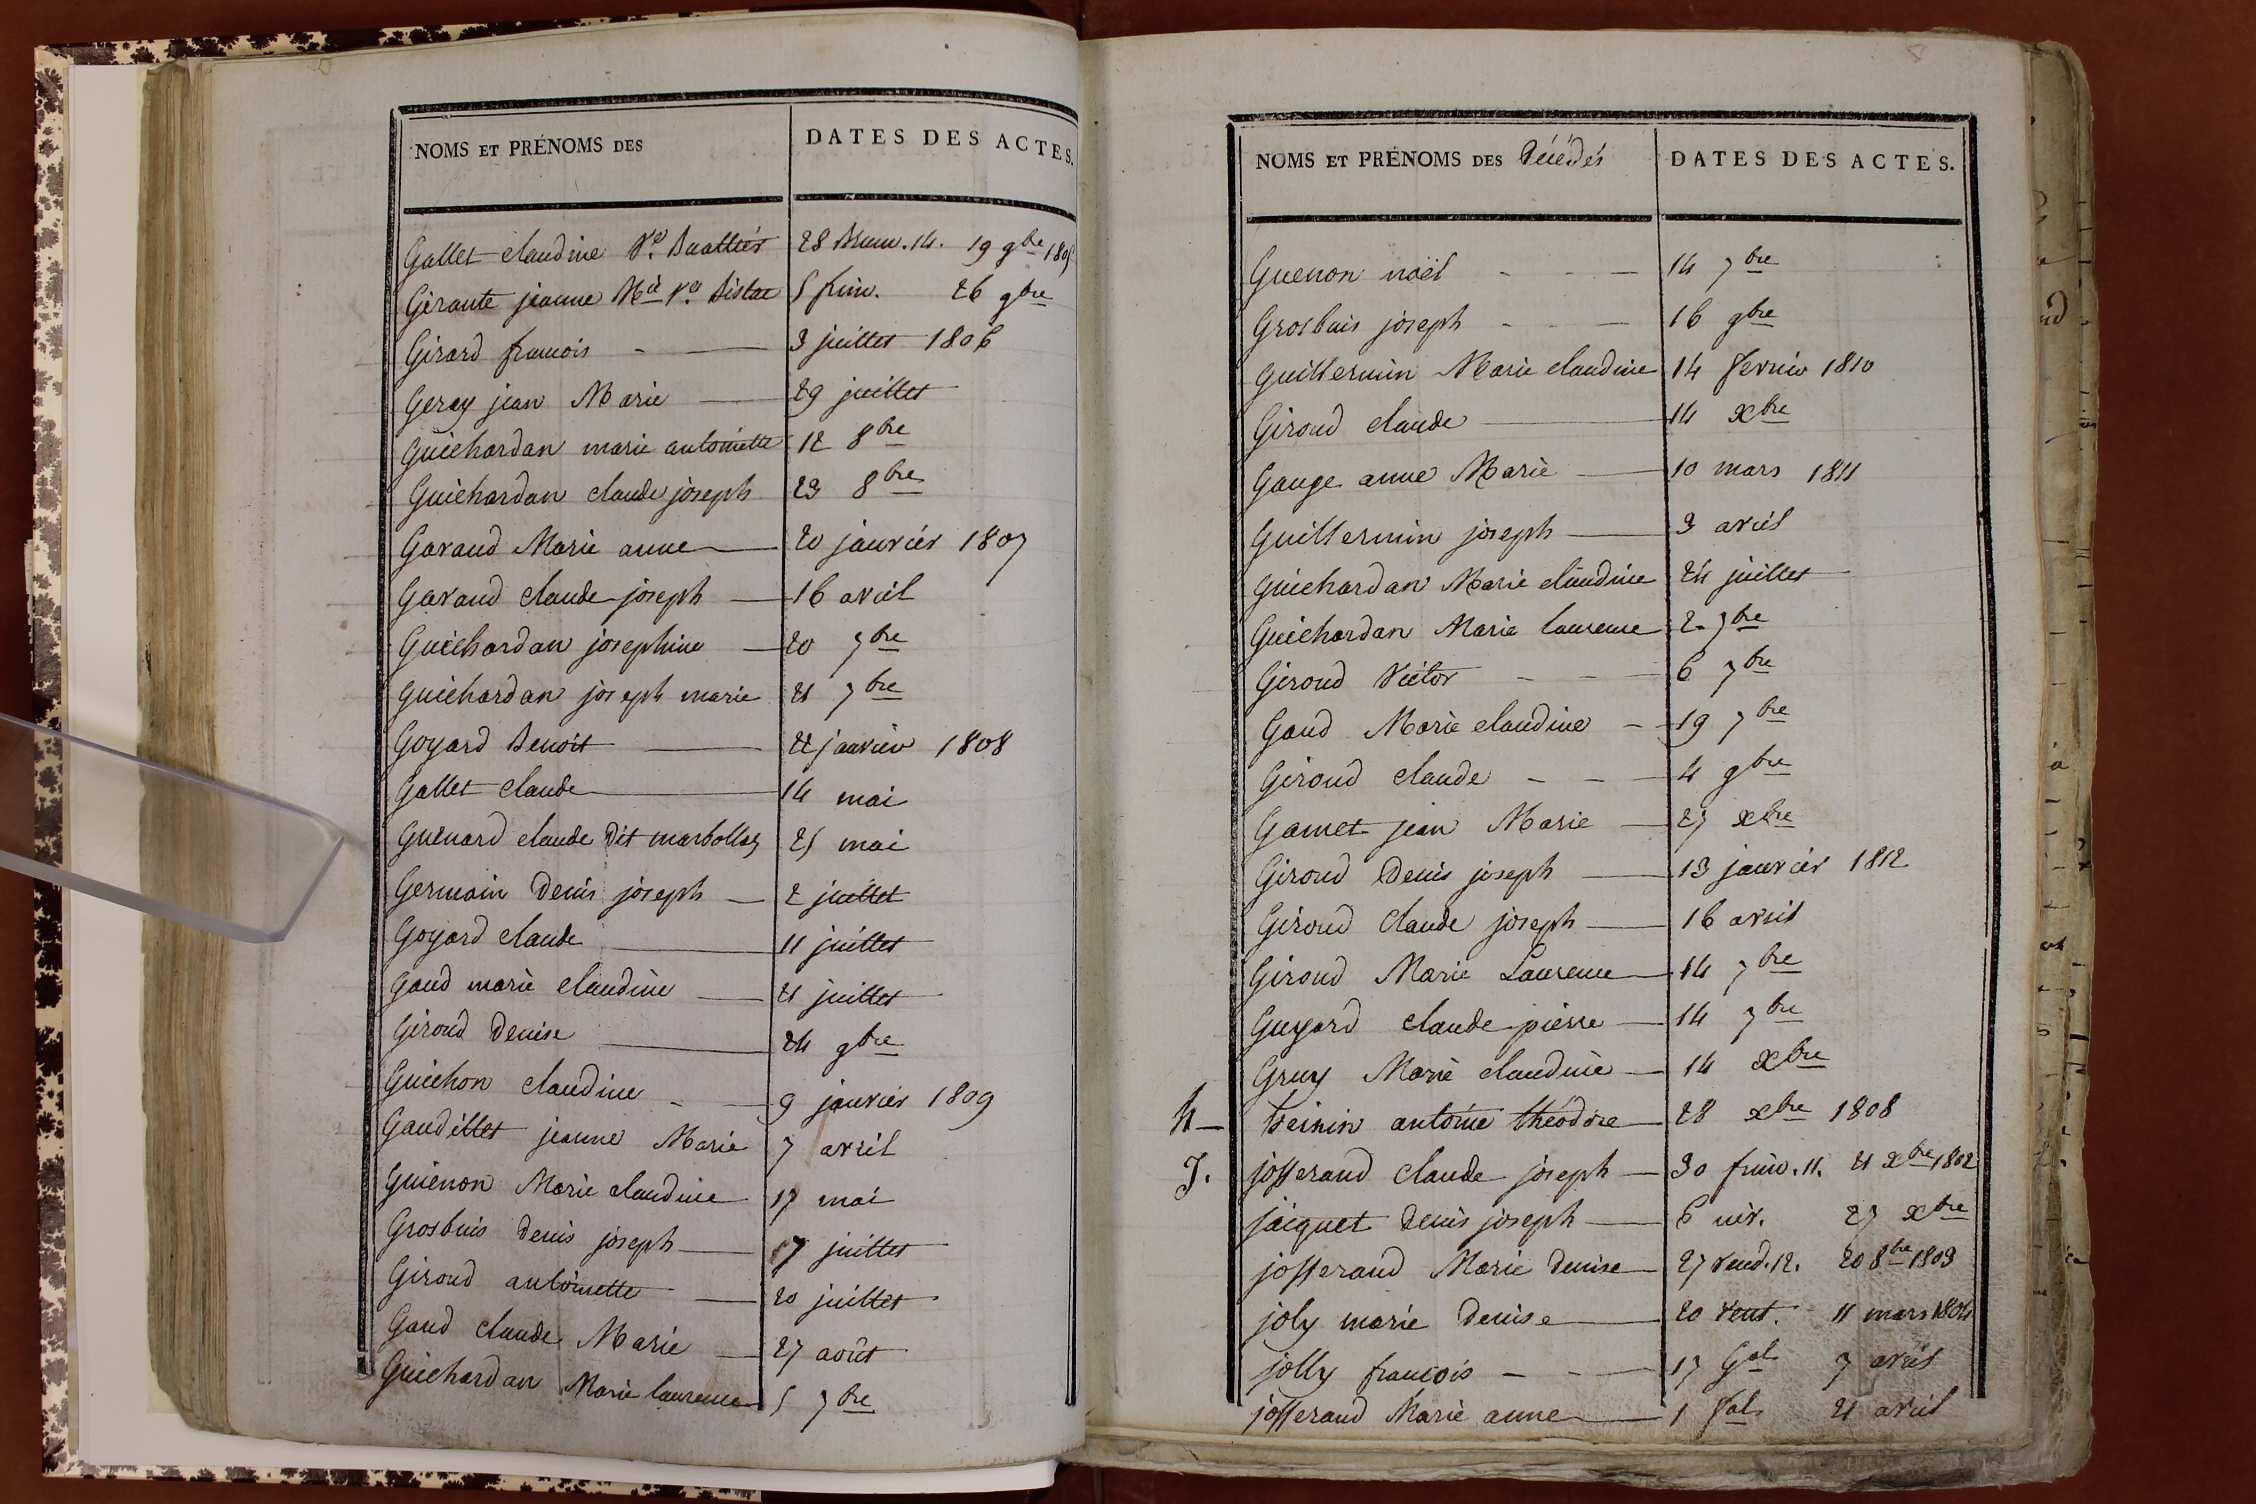 NOMS ET PRÉNOMS DES
DATES DES ACTES.
Gallet claudine Ve. Buattier 28 Brum. 14. 19 9bre 1805
Girante jeanne Md. Ve. 5 frim. 26 9bre
Girard francois 3 juillet 1806
Geray jean Marie 29 juillet
Guichardan marie antoinette 12 8bre
Guichardan claude joseph 23 8bre
Garaud Marie anne 20 janvier 1807
Garaud claude joseph 16 avril
Guichardan josephine 20 7bre
Guichardan joseph marie 21 7bre
Goyard Benoit 22 janvier 1808
Gallet claude 14 mai
Guenard claude Dit marbollay 25 mai
Germain Denis joseph 2 juillet
Goyard claude 11 juillet
Gaud marie claudine 21 juillet
Giroud Denise 24 9bre
Guichon claudine 9 janvier 1809
Gaudillet jeanne Marie 7 avril
Guienon Marie claudine 17 mai
Grosbuis Denis joseph 17 juillet
Giroud antoinette 20 juillet
Gaud claude Marie 27 août
Guichardan Marie laurence 5 7bre
NOMS ET PRÉNOMS DES Décédés
DATES DES ACTES.
Guenon noël 14 7bre
Grosbuis joseph 16 9bre
Guillermin Marie claudine 14 fevrier 1810
Giroud claude 14 xbre
Gauge anne Marie 10 mars 1811
Guillermin joseph 3 avril
Guichardan Marie claudine 24 juillet
Guichardan Marie laurence 2 7bre
Giroud Victor 6 7bre
Gaud Marie claudine 19 7bre
Giroud claude 4 9bre
Gamet jean Marie 27 xbre
Giroud Denis joseph 13 janvier 1812
Giroud Claude joseph 16 avril
Giroud Marie Laurence 14 7bre
Guyard claude pierre 14 7bre
Gruy Marie claudine 14 xbre
h antoine théodore 28 xbre 1808
J. josserand claude joseph 30 frim. 11. 21 xbre 1802
jacquet Denis joseph 6 niv. 27 xbre
josserand Marie Denise 27 vend. 12. 20 8bre 1803
joly marie Denise 20 vent. 11 mars 1804
jolly francois 17 Gal 7 avril
josserand Marie anne 1 fal 21 avril